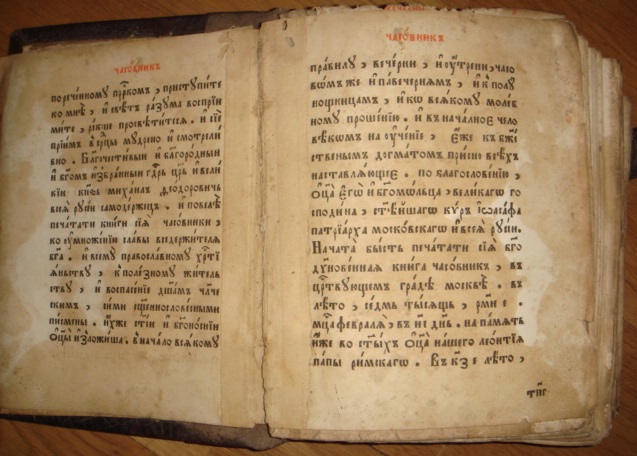 часовникъ
пореченному пр҃ркомъ, приступите
ко мнѣ, и свѣтъ разума воспрїи
мите, рекше просвѣтитеся. и сїе
прїимъ въ ср҃цы мудрено и смотрели
вно. Бл҃гочестивыи и бл҃городныи
и бг҃омъ избранныи гд҃рь цр҃ь и вели
кїи кн҃зь михаилъ ѳеодоровичь
всеѧ̀ русїи самодержецъ. и повелѣ
печатати книги сїѧ часовники,
во оумноженїе славы вседержителѧ
бг҃а. и всему православному хрⷭ҇тї
ѧньству, к полезному житель
ству, и воспасенїе дш҃амъ чл҃че
скимъ, сими сщ҃еннословесными
писмены. ихже ст҃їи и бг҃оноснїи
оц҃ы изложиша. в начало всѧкому
часовникъ
правилу, вечерни, и оутрени, часо
вѡмъ же и павечернѧмъ, и к полу
нощницамъ, и ко всѧкому молеб
ному прошенїю. и в началное чело
вѣкомъ на оученїе, еже къ бж҃е
ственымъ догматомъ присно всѣхъ
наставлѧющее. по благословенїю,
оц҃а его и бг҃омольца, великаго го
сподина, ст҃ѣйшаго кѵръ їѡасафа
патрїарха московскаго и всеѧ русїи.
Начата бысть печатати сїѧ бг҃о
духновенная книга часовникъ, въ
цр҃твующемъ градѣ москвѣ. в
лѣто, седмь тысѧщь, рм҃и е.
мц҃а февралѧ, въ и҃і дн҃ь. на памѧть
иже во ст҃ыхъ оц҃а нашего леонтїѧ
папы римскаго. Въ к҃з е лѣто,